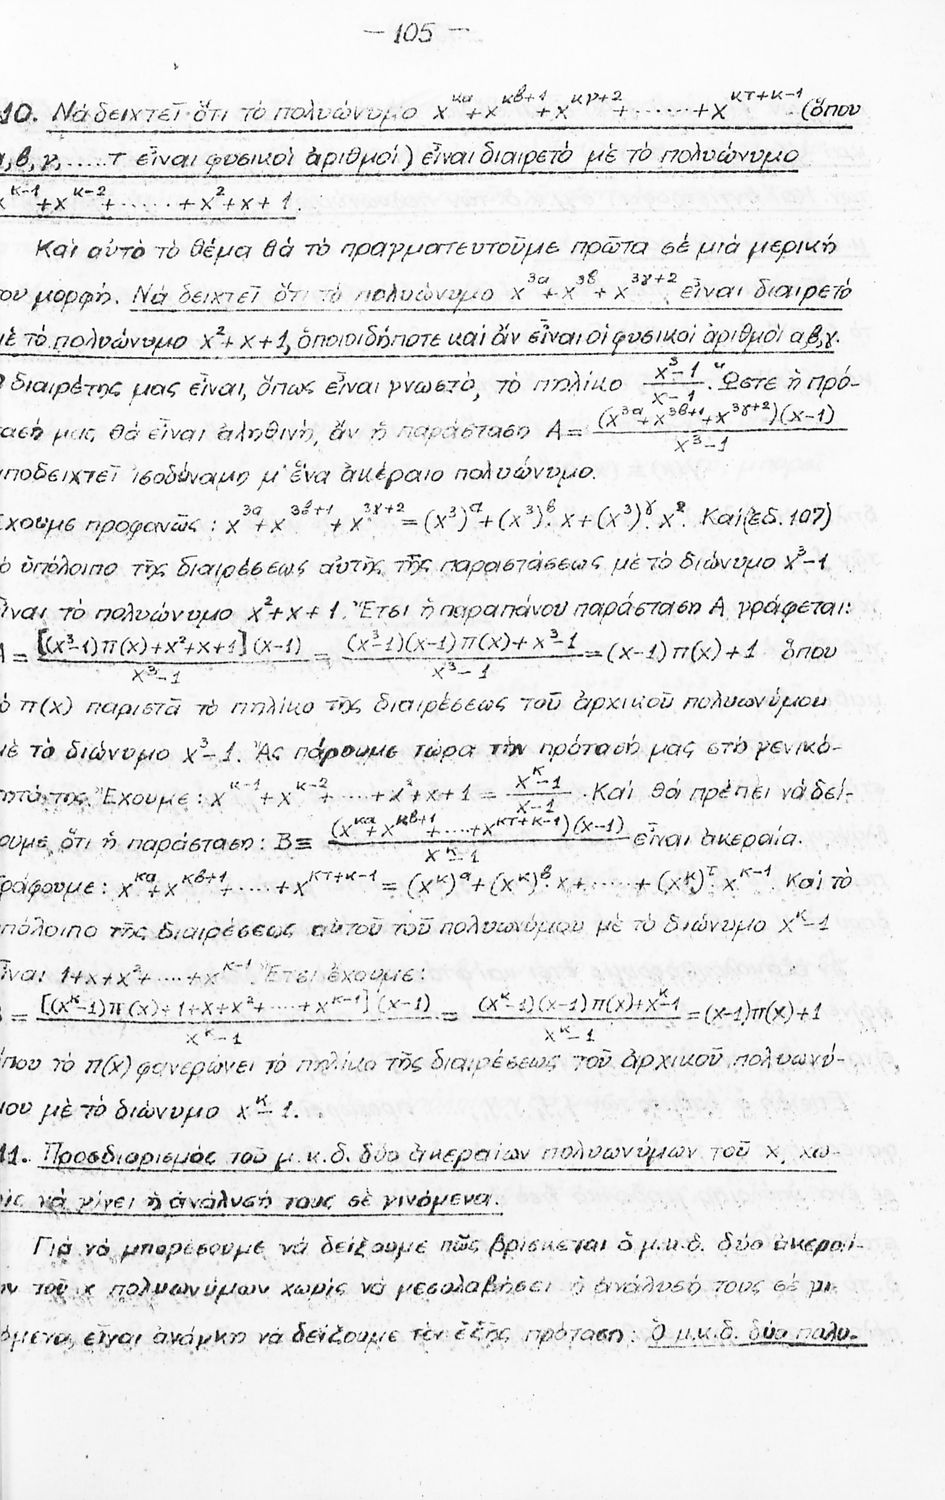 — 105 —
10. Νά δειχτεῖ ὅτι τὸ πολυώνυμο x^κα + x^κβ+1 + x^κγ+2 + ...... + x^κτ+κ-1 (ὅπου
α,β,γ,.....τ εἶναι φυσικοὶ ἀριθμοί) εἶναι διαιρετὸ μὲ τὸ πολυώνυμο
x^κ-1 + x^κ-2 + ...... + x²+x+1.
Καὶ αὐτὸ τὸ θέμα θὰ τὸ πραγματευτοῦμε πρῶτα σὲ μιὰ μερική
του μορφή. Νὰ δειχτεῖ ὅτι τὸ πολυώνυμο x^3α + x^3β + x^3γ+2 εἶναι διαιρετὸ
μὲ τὸ πολυώνυμο x²+x+1, ὁποιοιδήποτε καὶ ἄν εἶναι οἱ φυσικοὶ ἀριθμοὶ α,β,γ.
διαιρέτης μας εἶναι, ὅπως εἶναι γνωστὸ, τὸ πηλίκο (x³-1)/(x-1). Ὥστε ἡ πρό-
τασή μας θὰ εἶναι ἀληθινὴ, ἄν ἡ παράσταση A = (x^3α + x^3β+1 + x^3γ+2)(x-1)/(x³-1)
ἀποδειχτεῖ ἰσοδύναμη μ' ἕνα ἀκέραιο πολυώνυμο.
Ἔχουμε προφανῶς : x^3α + x^3β+1 + x^3γ+2 = (x³)^α + (x³)^β. x + (x³)^γ. x². Καὶ (ἐδ. 107)
τὸ ὑπόλοιπο τῆς διαιρέσεως αὐτῆς τῆς παραστάσεως μὲ τὸ διώνυμο x³-1
εἶναι τὸ πολυώνυμο x²+x+1. Ἔτσι ἡ παραπάνου παράσταση A γράφεται:
A = [(x³-1)π(x)+x²+x+1](x-1)/(x³-1) = ((x³-1)(x-1)π(x)+x³-1)/(x³-1) = (x-1)π(x)+1 ὅπου
τὸ π(x) παριστᾶ τὸ πηλίκο τῆς διαιρέσεως τοῦ ἀρχικοῦ πολυωνύμου
μὲ τὸ διώνυμο x³-1. Ἄς πάρουμε τώρα τὴν πρότασή μας στὴ γενικό-
τητά της. Ἔχουμε : x^κ-1 + x^κ-2 + ... + x²+x+1 = (x^κ-1)/(x-1). Καὶ θὰ πρέπει νὰ δεί-
ξουμε, ὅτι ἡ παράσταση : B ≡ (x^κα + x^κβ+1 + ... + x^κτ+κ-1)(x-1)/(x^κ-1) εἶναι ἀκεραία.
Γράφουμε : x^κα + x^κβ+1 + ... + x^κτ+κ-1 = (x^κ)^α + (x^κ)^β. x + ...... + (x^κ)^τ. x^κ-1. Καὶ τὸ
ὑπόλοιπο τῆς διαιρέσεως αὐτοῦ τοῦ πολυωνύμου μὲ τὸ διώνυμο x^κ-1
εἶναι 1+x+x²+ ... +x^κ-1. Ἔτσι ἔχουμε :
B = [(x^κ-1)π(x)+1+x+x²+ ... +x^κ-1](x-1)/(x^κ-1) = ((x^κ-1)(x-1)π(x)+x^κ-1)/(x^κ-1) = (x-1)π(x)+1
ὅπου τὸ π(x) φανερώνει τὸ πηλίκο τῆς διαιρέσεως τοῦ ἀρχικοῦ πολυωνύ-
μου μὲ τὸ διώνυμο x^κ-1.
11. Προσδιορισμὸς τοῦ μ.κ.δ. δύο ἀκεραίων πολυωνύμων τοῦ x, χω-
ρὶς νὰ γίνει ἡ ἀνάλυσή τους σὲ γινόμενα.
Γιὰ νὰ μπορέσουμε νὰ δείξουμε πῶς βρίσκεται ὁ μ.κ.δ. δύο ἀκεραί-
ων τοῦ x πολυωνύμων χωρὶς νὰ μεσολαβήσει ἡ ἀνάλυσή τους σὲ γι-
νόμενα, εἶναι ἀνάγκη νὰ δείξουμε τὴν ἑξῆς πρόταση : Ὁ μ.κ.δ. δύο πολυ-